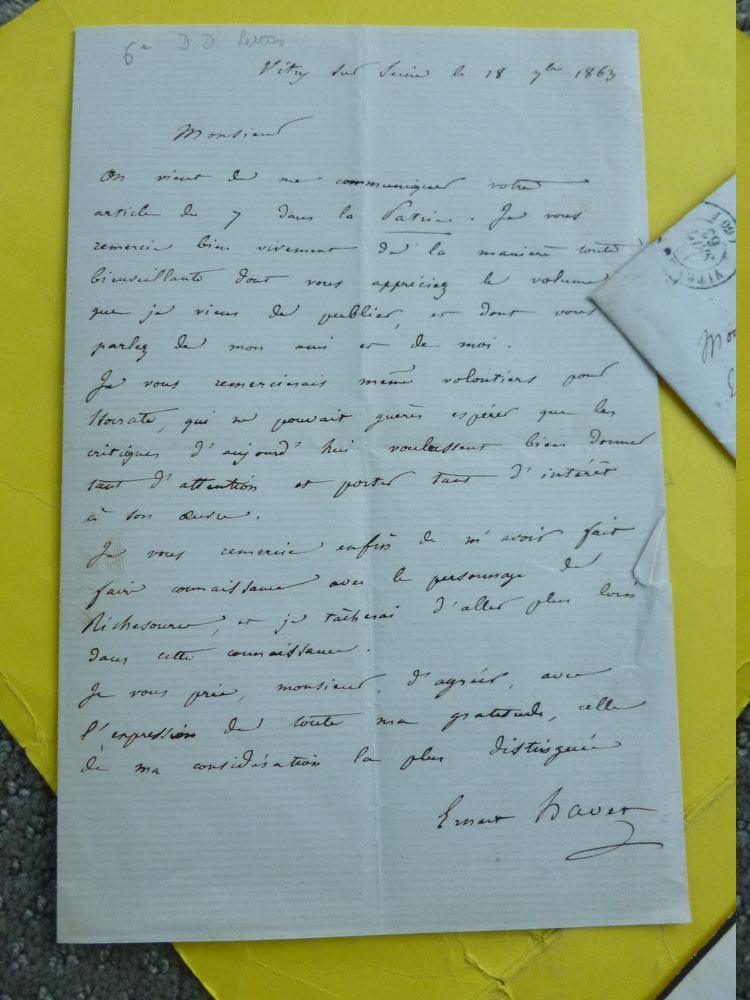 6e D. D.
Vitry sur Seine le 18 7bre 1863
Monsieur
On vient de me communiquer votre
article du 7 dans la Patrie. Je vous
remercie bien vivement de la manière toute
bienveillante dont vous appréciez le volume
que je viens de publier, et dont vous
parlez de mon ami et de moi.
Je vous remercierais même volontiers pour
Isocrate, qui ne pouvait guères espérer que les
critiques d'aujourd'hui voulussent bien donner
tant d'attention et porter tant d'intérêt
à son œuvre.
Je vous remercie enfin de m'avoir fait
faire connaissance avec le personnage de
Richesource, et je tâcherai d'aller plus loin
dans cette connaissance.
Je vous prie, monsieur, d'agréer, avec
l'expression de toute ma gratitude, celle
de ma considération la plus distinguée
Ernest Havet